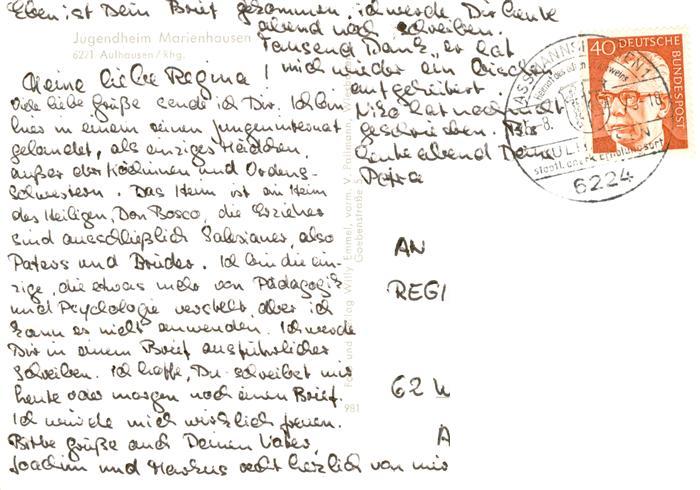 Eben ist Dein Brief gekommen, ich werde Dir heute
abend noch schreiben.
Tausend Dank, er hat
mich wieder ein bisschen
aufgeheitert
Niko hat noch nicht
geschrieben. Bis
heute abend Deine
Petra
Jugendheim Marienhausen
6221 Aulhausen / khg.
Meine liebe Regina!
Viele liebe Grüße sende ich Dir. Ich bin
hier in einem reinen Jungeninternat
gelandet, als einziges Mädchen,
außer der Köchinnen und Ordens-
schwestern. Das Heim ist ein Heim
des Heiligen, Don Bosco, die Erzieher
sind ausschließlich Salesianer, also
Paters und Brüder. Ich bin die ein-
zige, die etwas mehr von Pädagogik
und Psychologie versteht, aber ich
kann es nicht anwenden. Ich werde
Dir in einem Brief ausführlicher
schreiben. Ich hoffe, Du schreibst mir
heute oder morgen noch einen Brief.
Ich würde mich wirklich freuen.
Bitte grüße auch Deinen Vater,
Joachim und Markus recht herzlich von mir
Verlag Willy Emmel, vorm. V. Pollmann,
Goebenstraße
981
AN
REGI
62
A
40 DEUTSCHE
BUNDESPOST
ASSMANNSHAUSEN 1
staatl. anerk. Erholungsort
6224